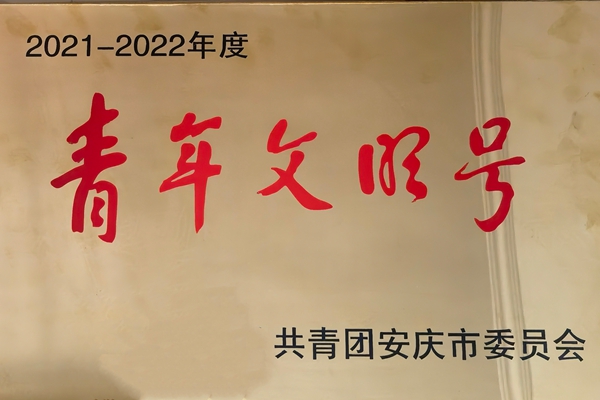 2021-2022年度
青年文明号
共青团安庆市委员会